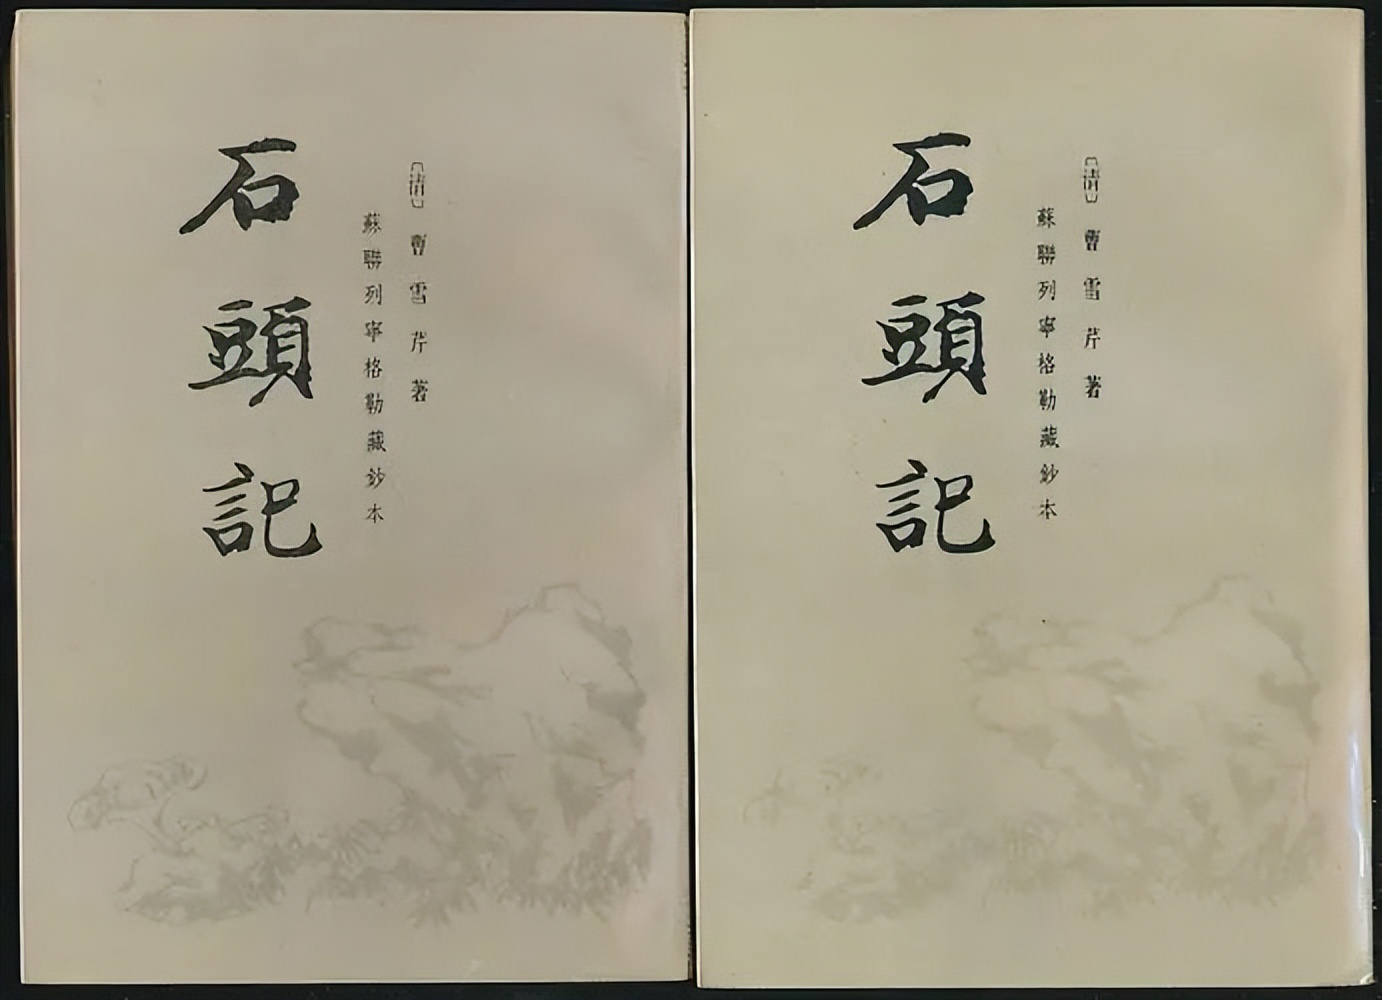 〔清〕曹雪芹著
蘇聯列寧格勒藏鈔本
石頭記
〔清〕曹雪芹著
蘇聯列寧格勒藏鈔本
石頭記